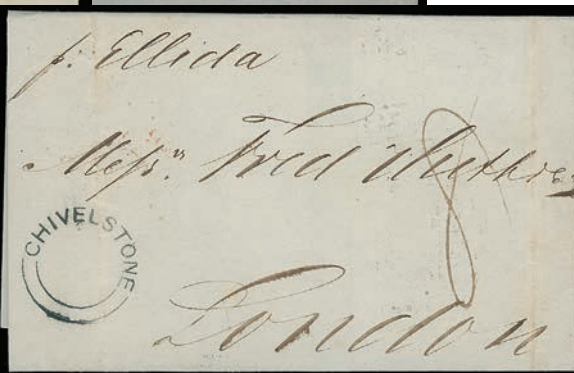 p. Ellida
Messrs. Fred Huth &
8
CHIVELSTONE
London